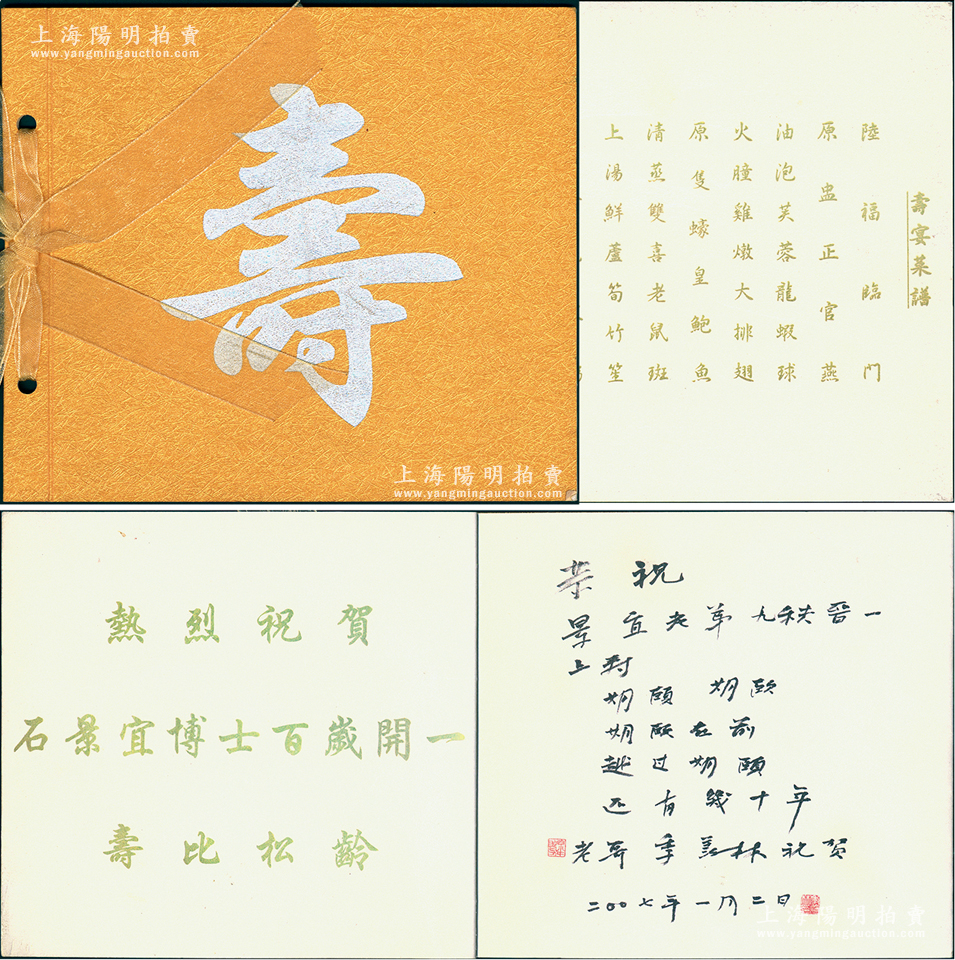 上海陽明拍賣
www.yangmingauction.com
壽
上海陽明拍賣
www.yangmingauction.com
壽宴菜譜
陸福臨門
原盅正官燕
油泡芙蓉龍蝦球
火朣雞燉大排翅
原隻蠔皇鮑魚
清蒸雙喜老鼠斑
上湯鮮蘆筍竹笙
熱烈祝賀
石景宜博士百歲開一
壽比松齡
恭祝
景宜老弟九秩晉一
上封
期頤 期頤
期頤在前
越过期頤
还有幾十年
老哥季羨林祝賀
二〇〇七年一月二日
上海陽明拍賣
www.yangmingauction.com